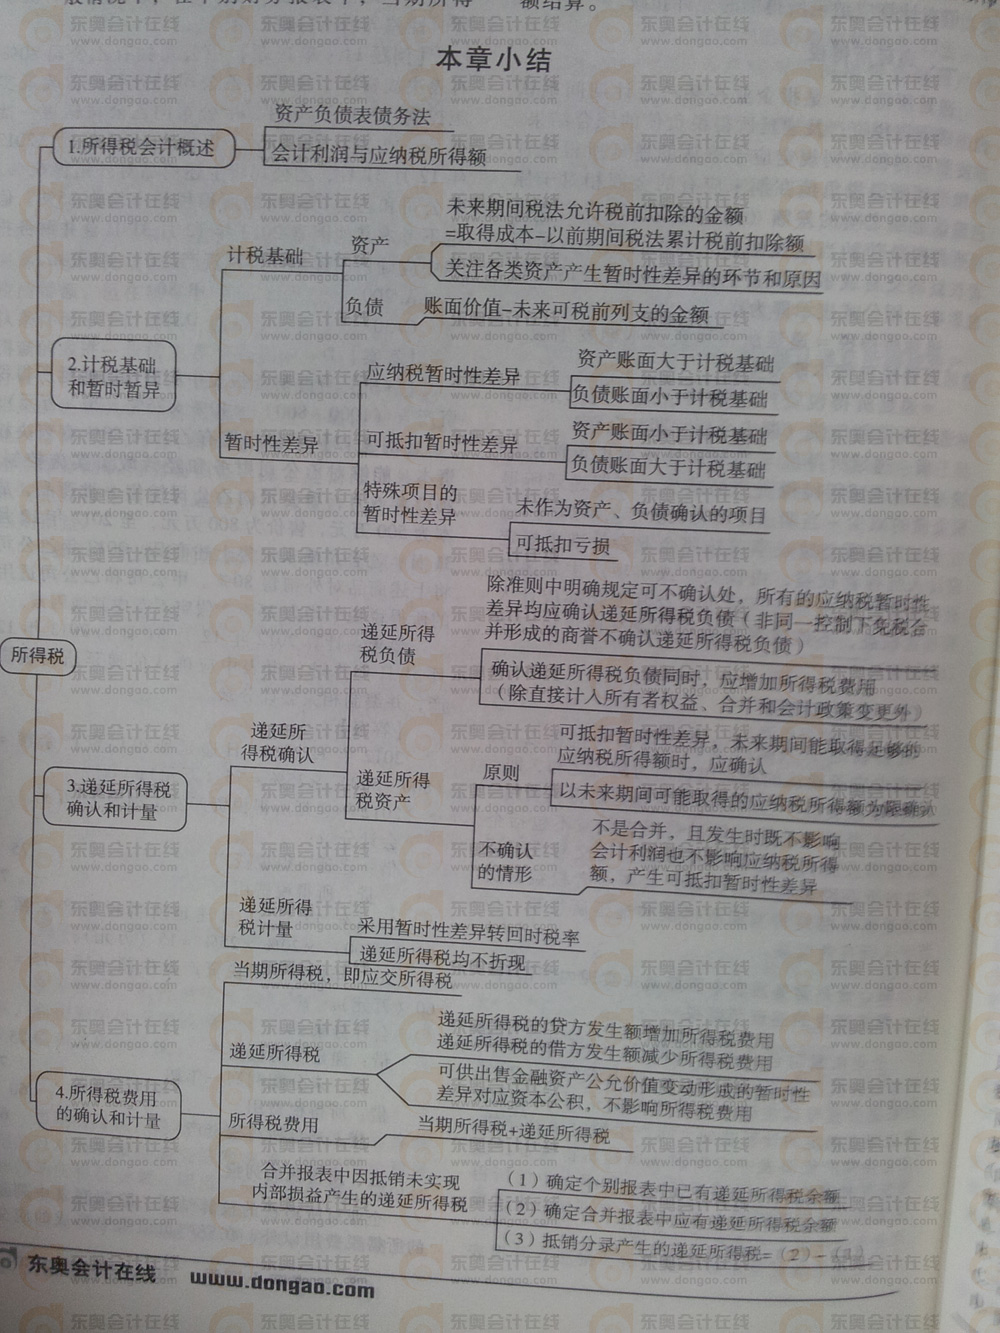 额结算。
本章小结
所得税
1.所得税会计概述
资产负债表债务法
会计利润与应纳税所得额
2.计税基础
和暂时暂异
计税基础
资产
未来期间税法允许税前扣除的金额
=取得成本-以前期间税法累计税前扣除额
关注各类资产产生暂时性差异的环节和原因
负债
账面价值-未来可税前列支的金额
暂时性差异
应纳税暂时性差异
资产账面大于计税基础
负债账面小于计税基础
可抵扣暂时性差异
资产账面小于计税基础
负债账面大于计税基础
特殊项目的
暂时性差异
未作为资产、负债确认的项目
可抵扣亏损
3.递延所得税
确认和计量
递延所
得税确认
递延所得
税负债
除准则中明确规定可不确认处，所有的应纳税暂时性
差异均应确认递延所得税负债（非同一控制下免税合
并形成的商誉不确认递延所得税负债）
确认递延所得税负债同时，应增加所得税费用
（除直接计入所有者权益、合并和会计政策变更外）
递延所得
税资产
原则
可抵扣暂时性差异，未来期间能取得足够的
应纳税所得额时，应确认
以未来期间可能取得的应纳税所得额为限确认
不确认
的情形
不是合并，且发生时既不影响
会计利润也不影响应纳税所得
额，产生可抵扣暂时性差异
递延所得
税计量
采用暂时性差异转回时税率
递延所得税均不折现
4.所得税费用
的确认和计量
当期所得税，即应交所得税
递延所得税
递延所得税的贷方发生额增加所得税费用
递延所得税的借方发生额减少所得税费用
可供出售金融资产公允价值变动形成的暂时性
差异对应资本公积，不影响所得税费用
所得税费用
当期所得税+递延所得税
合并报表中因抵销未实现
内部损益产生的递延所得税
（1）确定个别报表中已有递延所得税余额
（2）确定合并报表中应有递延所得税余额
（3）抵销分录产生的递延所得税=（2）-（1）
东奥会计在线
www.dongao.com